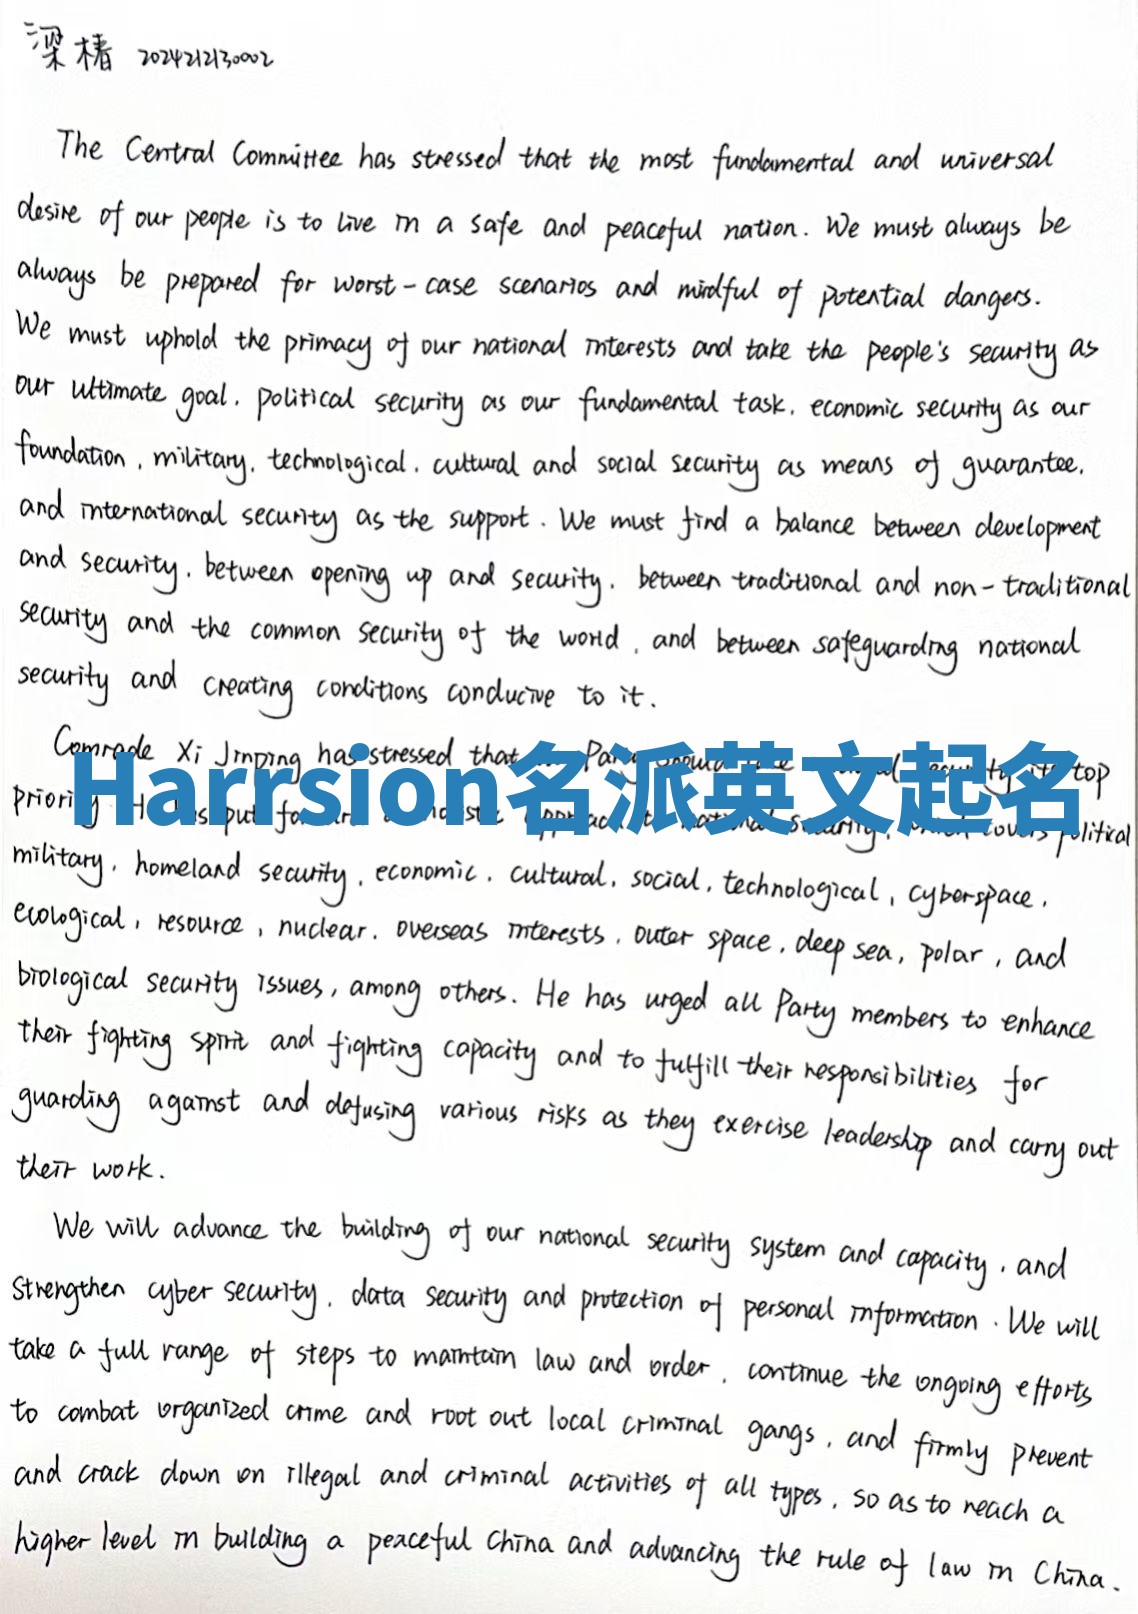 梁椿 2024212130002
The Central Committee has stressed that the most fundamental and universal
desire of our people is to live in a safe and peaceful nation. We must always be
always be prepared for worst-case scenarios and mindful of potential dangers.
We must uphold the primacy of our national interests and take the people's security as
our ultimate goal, political security as our fundamental task, economic security as our
foundation, military, technological, cultural and social security as means of guarantee,
and international security as the support. We must find a balance between development
and security, between opening up and security, between traditional and non-traditional
security and the common security of the world, and between safeguarding national
security and creating conditions conducive to it.
Comrade Xi Jinping has stressed that Party top
Harrsion名派英文起名
priority put covers political
military, homeland security, economic, cultural, social, technological, cyberspace,
ecological, resource, nuclear, overseas interests, outer space, deep sea, polar, and
biological security issues, among others. He has urged all Party members to enhance
their fighting spirit and fighting capacity and to fulfill their responsibilities for
guarding against and defusing various risks as they exercise leadership and carry out
their work.
We will advance the building of our national security system and capacity, and
strengthen cyber security, data security and protection of personal information. We will
take a full range of steps to maintain law and order, continue the ongoing efforts
to combat organized crime and root out local criminal gangs, and firmly prevent
and crack down on illegal and criminal activities of all types, so as to reach a
higher level in building a peaceful China and advancing the rule of law in China.